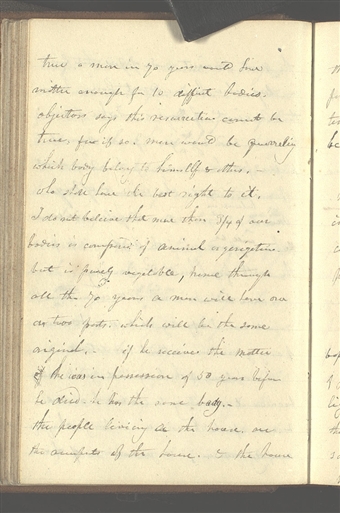 true a man in 70 years will have
matter enough for 10 diff't bodies.
objectors says this resurrection cannot be
true, for if so. men would be quarreling
which body belong to himself & this.
who shall have the best right to it.
I do not believe that more than 3/4 of our
bodies is composed of animal
but is purely vegitible, hence through
all the 70 years a man will have one
or two parts. which will be the same
original. if he receives the matter
of the in possession of 50 years before
he died. he has the same body.
the people living in the house are
the occupants of the house. & the house